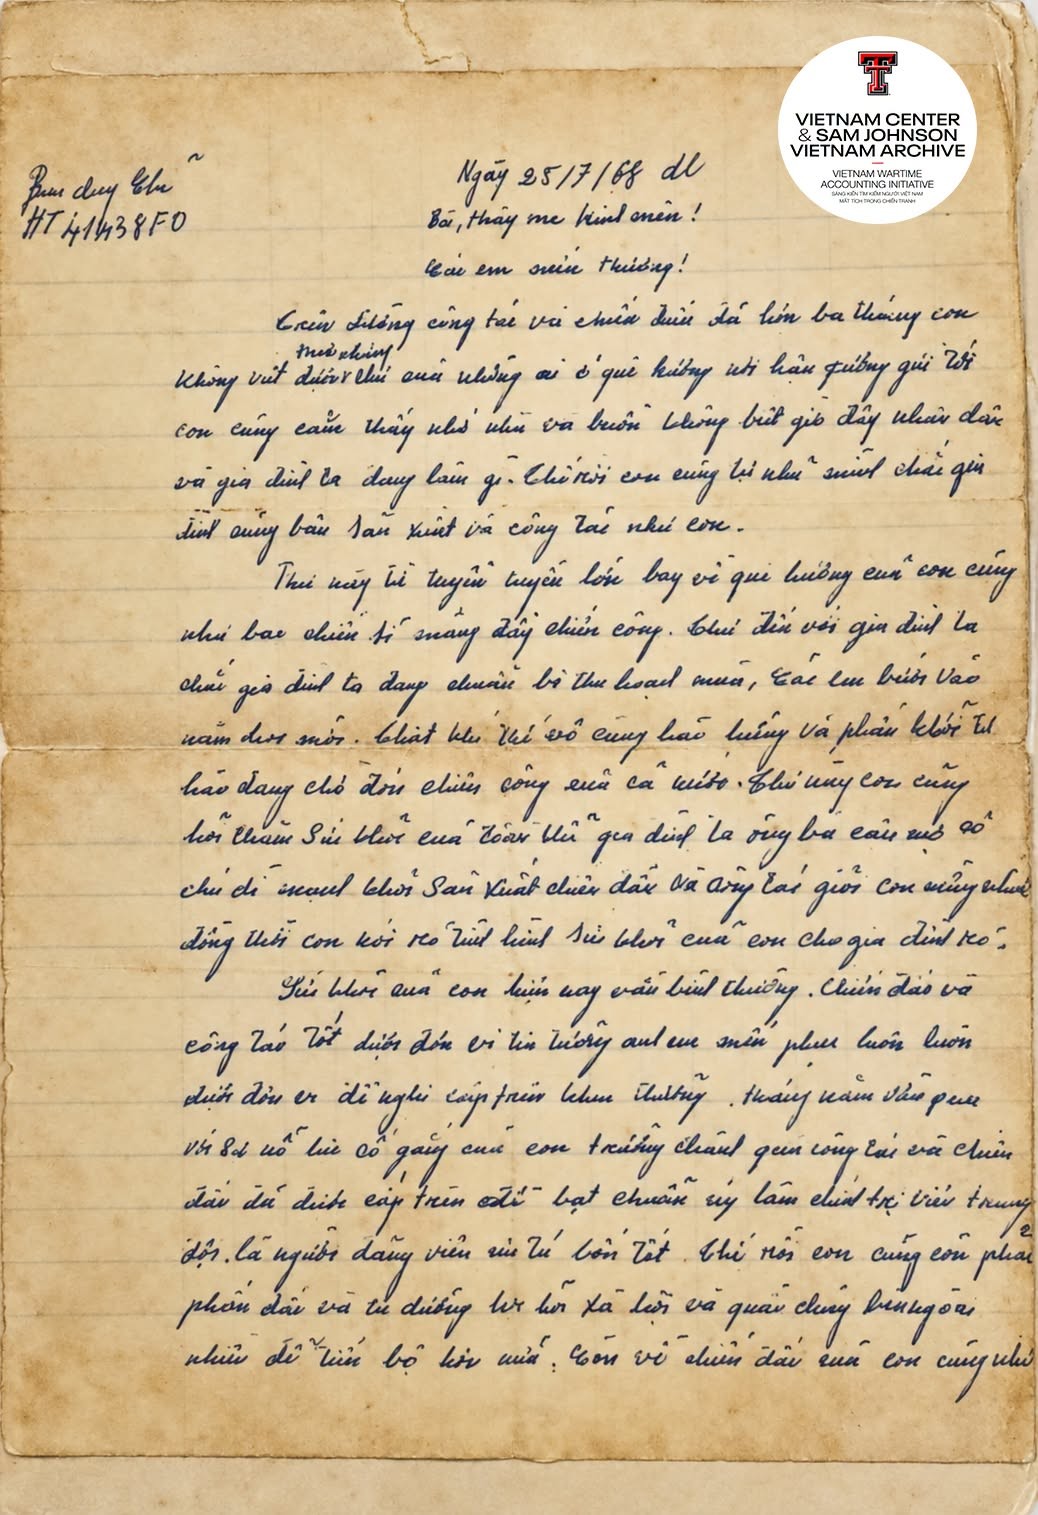 VIETNAM CENTER
& SAM JOHNSON
VIETNAM ARCHIVE
VIETNAM WARTIME
ACCOUNTING INITIATIVE
SÁNG KIẾN TÌM KIẾM NGƯỜI VIỆT NAM
MẤT TÍCH TRONG CHIẾN TRANH
duy Chũ
HT 41438FO
Ngày 25/7/68 dl
Bà, thầy me kính mến!
Các em mến thương!
Trên đường công tác và chiến đấu đã hơn ba tháng con
thư nhưng
không viết được chú của những ai ở quê hương nơi hậu phương gửi tới
con cũng cảm thấy nhớ nhà và buồn không biết giờ đây nhân dân
và gia đình ta đang làm gì. Thế rồi con cũng tự nhủ mình chắc gia
đình cũng bận sản xuất và công tác như con.
Thư này từ tuyền tuyến lớn bay về quê hương của con cũng
như bao chiến sĩ mang đầy chiến công. Thư đến với gia đình ta
chắc gia đình ta đang chuẩn bị thu hoạch mùa, Các em bước vào
năm học mới. Chắt khí thế vô cùng hào hùng và phấn khởi tự
hào đang chờ đón chiến công của cả nước. Thư này con cũng
hỏi thăm sức khỏe của toàn thể gia đình ta ông bà cậu mợ cô
chú dì mạnh khỏe sản xuất chiến đấu và công tác giỏi con mừng
đồng thời con nói rõ tình hình sức khỏe của con cho gia đình rõ.
Sức khỏe của con hiện nay vẫn bình thường. Chiến đấu và
công tác tốt được đơn vị tin tưởng anh em mến phục luôn luôn
được đơn vị đề nghị cấp trên khen thưởng. tháng năm vừa qua
với sự nỗ lực cố gắng của con trưởng thành qua công tác và chiến
đấu đã được cấp trên đề bạt chuẩn úy làm chính trị viên trung
đội. là người đảng viên ưu tú bốn tốt. Thế rồi con cũng còn phải
phấn đấu và tu dưỡng học hỏi xã hội và quần chúng bên ngoài
nhiều để tiến bộ hơn nữa. Còn về chiến đấu của con cũng như